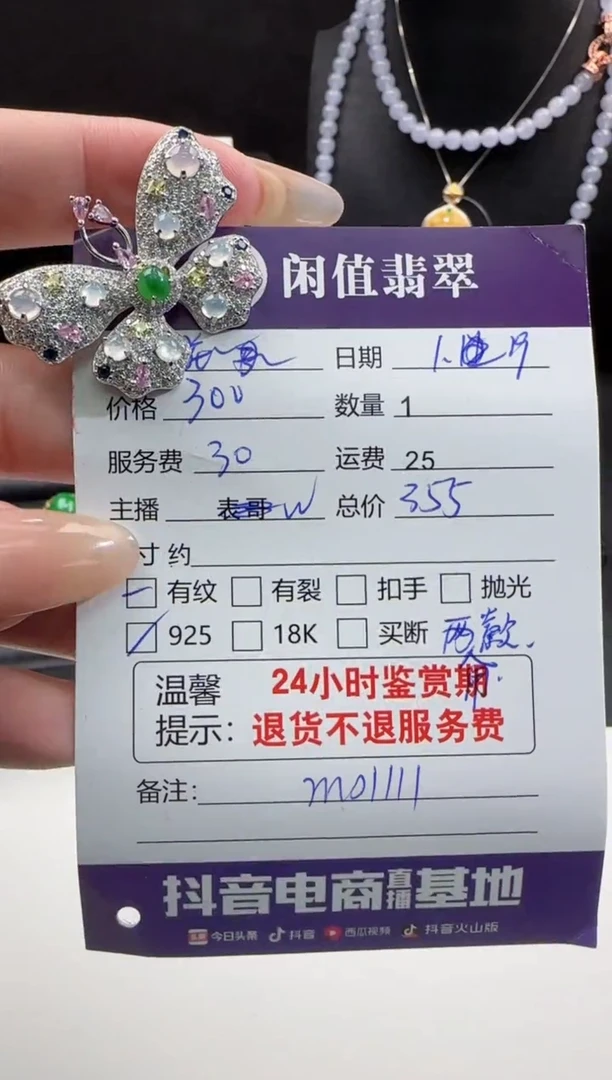 闲值翡翠
日期 1. 9
价格 300 数量 1
服务费 30 运费 25
主播 表哥 W 总价 355
寸 约
有纹 有裂 扣手 抛光
925 18K 买断 两款
温馨 24小时鉴赏期
提示：退货不退服务费
备注： m01111
抖音电商直播基地
头条 今日头条 抖音 西瓜视频 抖音火山版